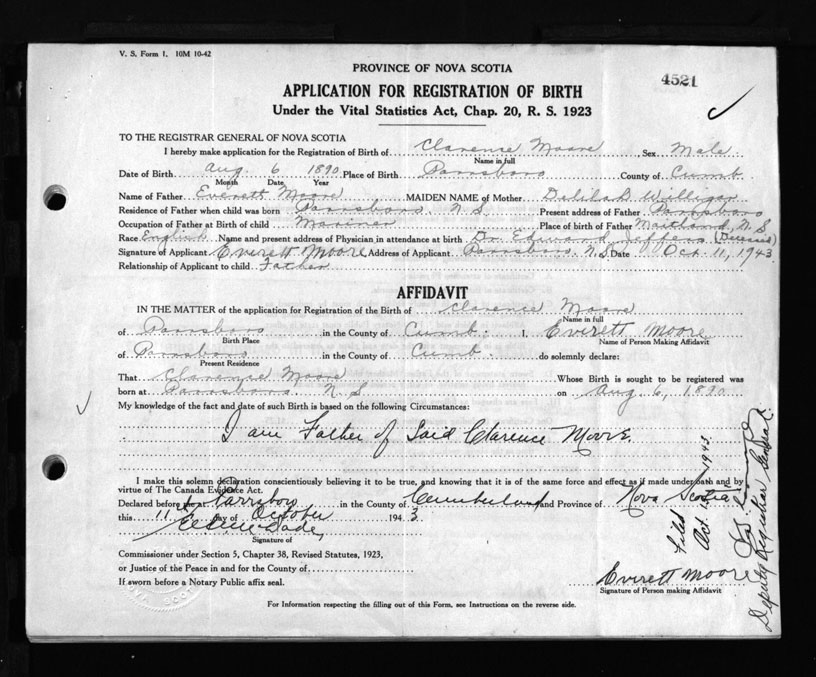 V. S. Form 1. 10M 10-42
PROVINCE OF NOVA SCOTIA
4521
APPLICATION FOR REGISTRATION OF BIRTH
Under the Vital Statistics Act, Chap. 20, R. S. 1923
TO THE REGISTRAR GENERAL OF NOVA SCOTIA
I hereby make application for the Registration of Birth of Clarence Moore Sex Male
Name in full
Date of Birth Aug 6 1890 Place of Birth Parrsboro County of Cumb
Month Date Year
Name of Father Everett Moore MAIDEN NAME of Mother Delilah
Residence of Father when child was born Parrsboro N S Present address of Father Parrsboro
Occupation of Father at Birth of child Mariner Place of birth of Father Maitland, N. S
Race English Name and present address of Physician in attendance at birth Dr. Edward Jeffers (Deceased)
Signature of Applicant Everett Moore Address of Applicant Parrsboro N. S Date Oct. 11, 1943
Relationship of Applicant to child Father
AFFIDAVIT
IN THE MATTER of the application for Registration of the Birth of Clarence Moore
Name in full
of Parrsboro in the County of Cumb. I, Everett Moore
Birth Place Name of Person Making Affidavit
of Parrsboro in the County of Cumb do solemnly declare:
Present Residence
That Clarence Moore Whose Birth is sought to be registered was
born at Parrsboro N. S on Aug 6, 1890
My knowledge of the fact and date of such Birth is based on the following Circumstances:
I am Father of Said Clarence Moore
I make this solemn declaration conscientiously believing it to be true, and knowing that it is of the same force and effect as if made under oath and by
virtue of The Canada Evidence Act.
Declared before me at Parrsboro in the County of Cumberland and Province of Nova Scotia
this 11 day of October 1943
Signature of
Commissioner under Section 5, Chapter 38, Revised Statutes, 1923,
or Justice of the Peace in and for the County of
If sworn before a Notary Public affix seal.
Everett Moore
Signature of Person making Affidavit
For Information respecting the filling out of this Form, see Instructions on the reverse side.
Filed
Oct. 1943
Deputy Registrar General